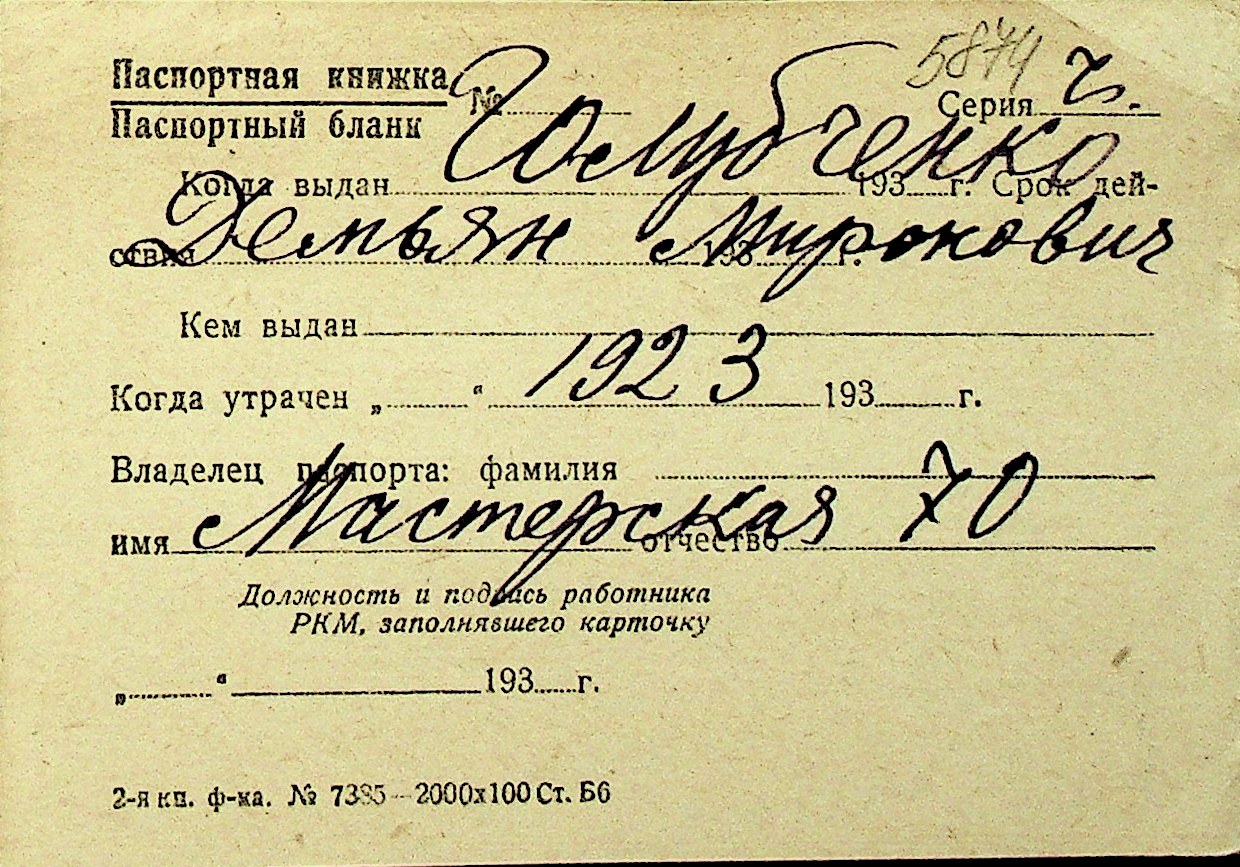 5874
Паспортная книжка
Паспортный бланк
№ Серия ч.
Голубченко
Когда выдан 193 г. Срок дей-
ствия 193 г.
Демьян Миронович
Кем выдан
1923
Когда утрачен „ “ 193 г.
Владелец паспорта: фамилия
Мастерская 70
имя отчество
Должность и подпись работника
РКМ, заполнявшего карточку
„ “ 193 г.
2-я кн. ф-ка. № 7385—2000х100 Ст. Б6